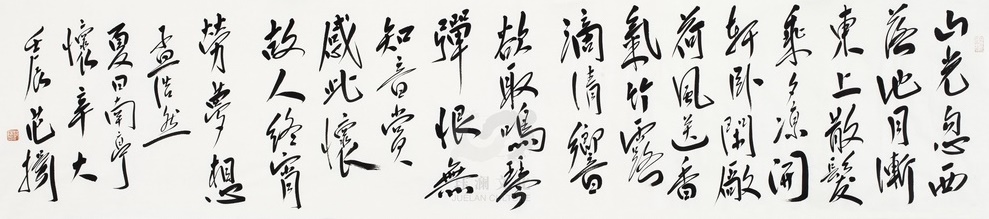 山光忽西
落池月漸
東上散髮
乘夕凉開
軒卧閑廠
荷風送香
氣竹露
滴清響
欲取鳴琴
彈恨無
知音賞
感此懷
故人終宵
勞夢想
孟浩然
夏日南亭
懷辛大
壬辰范揚
JUELAN